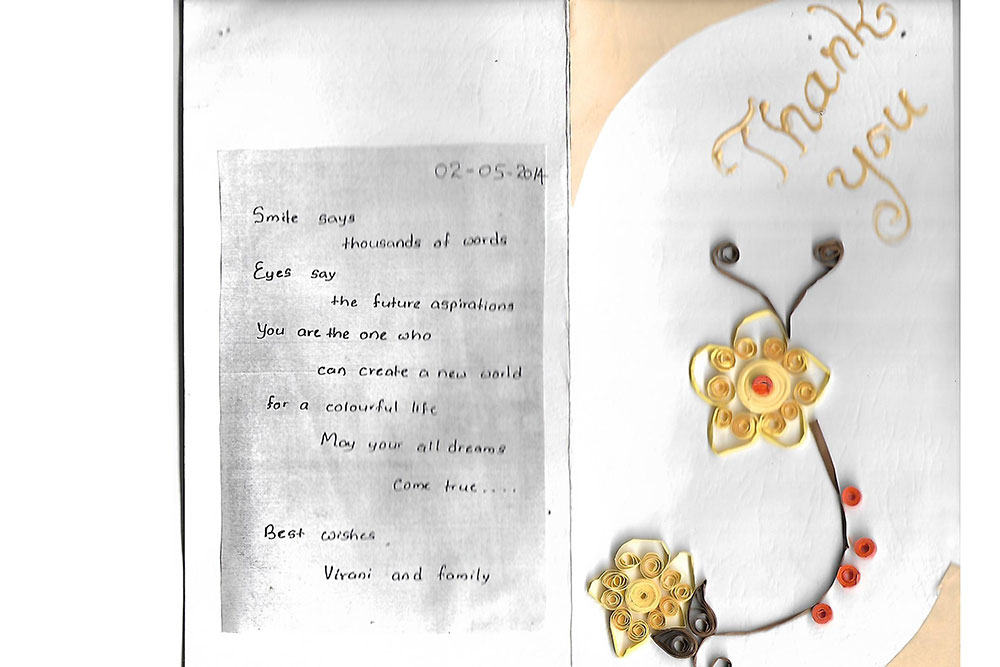 02-05-2014
Smile says
thousands of words
Eyes say
the future aspirations
You are the one who
can create a new world
for a colourful life
May your all dreams
come true....
Best wishes
Virani and family
Thank
you